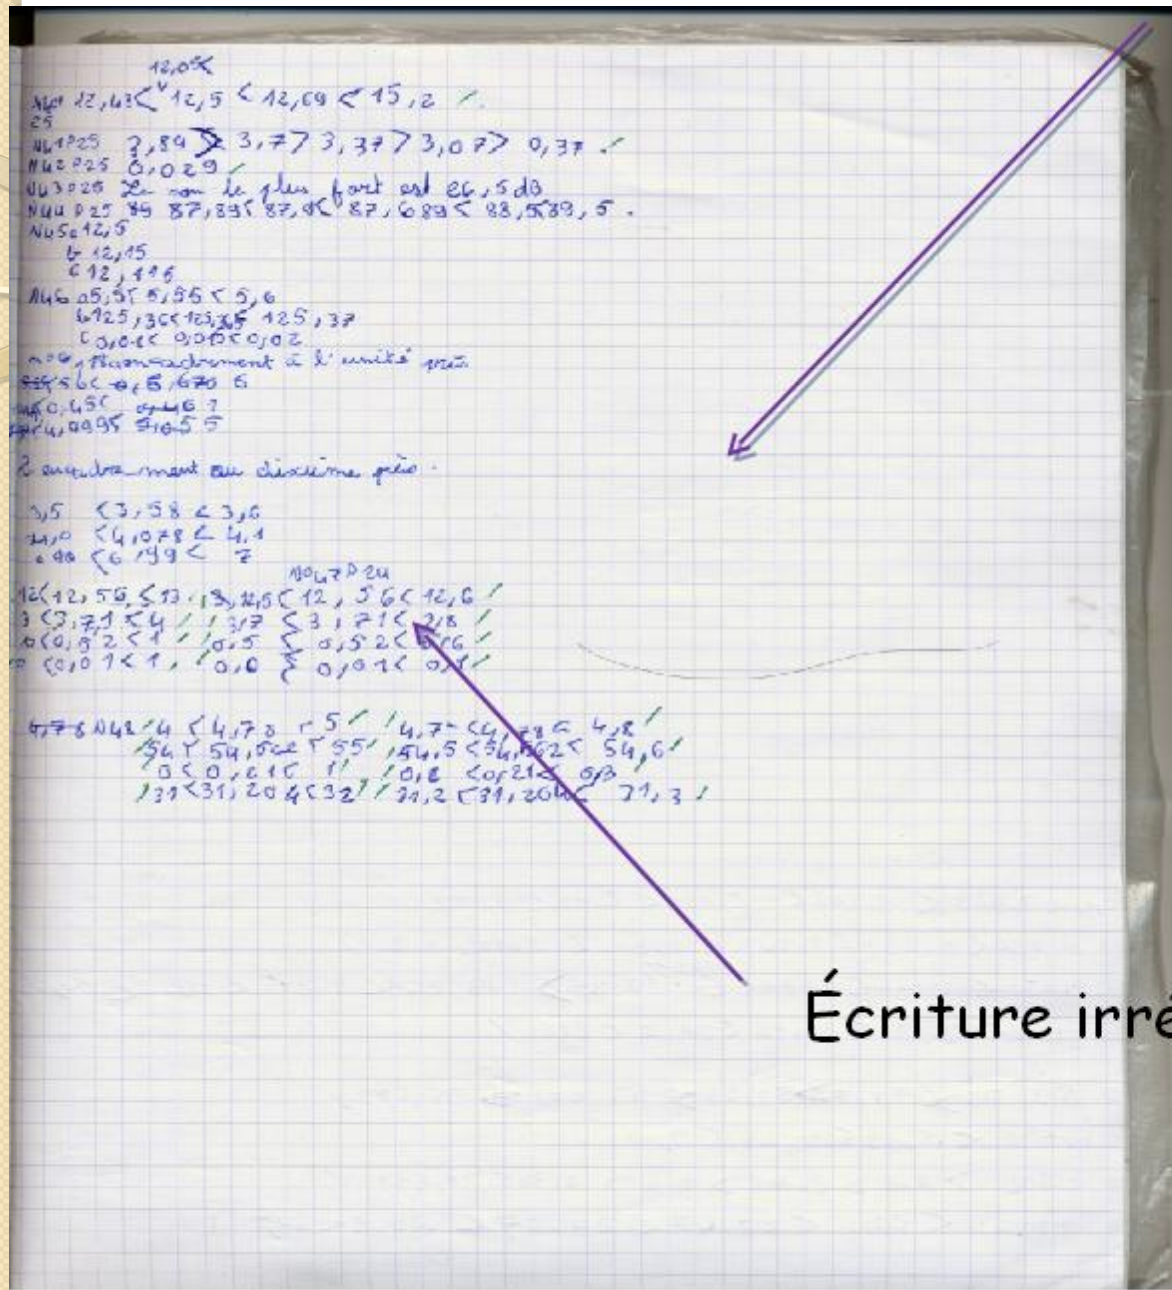 12,05<
12,43< 12,5 < 12,69 < 15,2
25
N41P25 3,84 > 3,7 > 3,37 > 3,07 > 0,37.
N42P25 0,029
N43P25 Le son le plus fort est 86,5dB
N44P25 87,689< 88,5
N45a 12,5
b 12,15
c 12,
N46 a5,5< 5,55 < 5,6
b125,36< 125,37
c 0,01< 0,015<0,02
encadrement à l'unité près
5,670 6
0,45<
4,999<
2 encadrement au dixième près.
3,5 <3,58 < 3,6
4,0 <4,078< 4,1
<6,99< 7
N°47P24
12<12,56<13 12,5< 12,56<12,6
3<3,71<4 3,7 <3,71< 3,8
0<0,52<1 0,5 < 0,52< 0,6
<0,01<1 0,0 < 0,01< 0,1
4,78 N48 4 <4,78 < 5 4,7 <4,78< 4,8
54< 54,562 < 55 54,5 <54,562< 54,6
0<0,21< 1 0,2 <0,21< 0,3
31<31,204<32 31,2 <31,204< 31,3
Écriture irré